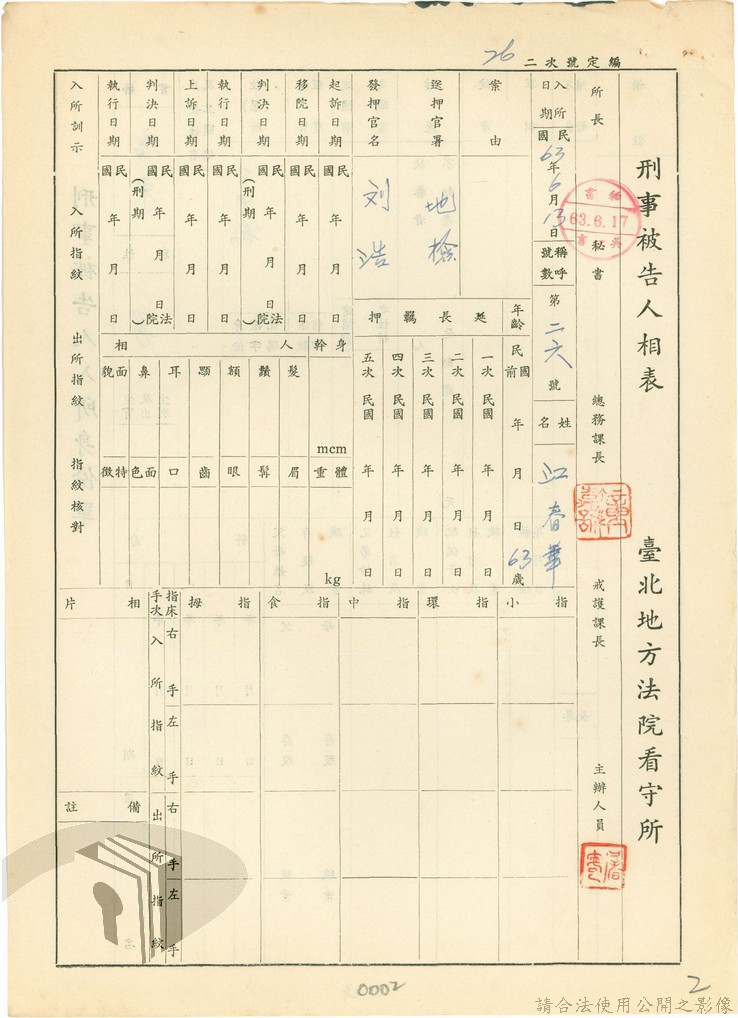 編定號次二 26
刑事被告人相表 臺北地方法院看守所
所長 秘書 總務課長 戒護課長 主辦人員
63.6.17
入所日期 民國63年6月13日 稱呼號數 第二六號 姓名 江春華
案由 年齡 民國前 年 月 日 63歲
送押官署 地檢
發押官名 刘浩
延長羈押
一次 民國 年 月 日
二次 民國 年 月 日
三次 民國 年 月 日
四次 民國 年 月 日
五次 民國 年 月 日
起訴日期 民國 年 月 日
移院日期 民國 年 月 日
判決日期 民國 年 月 日 (刑期 法院)
執行日期 民國 年 月 日
上訴日期 民國 年 月 日
判決日期 民國 年 月 日 (刑期 法院)
執行日期 民國 年 月 日
身幹 mcm
體重 kg
人相
髮 鬚 額 顎 耳 鼻 面貌
眉 髯 眼 齒 口 面色 特徵
入所訓示 入所指紋 出所指紋 指紋核對
小指 環指 中指 食指 拇指
指床 右手 左手 右手 左手
手次 入所指紋 出所指紋
相片
備註
0002
2
請合法使用公開之影像